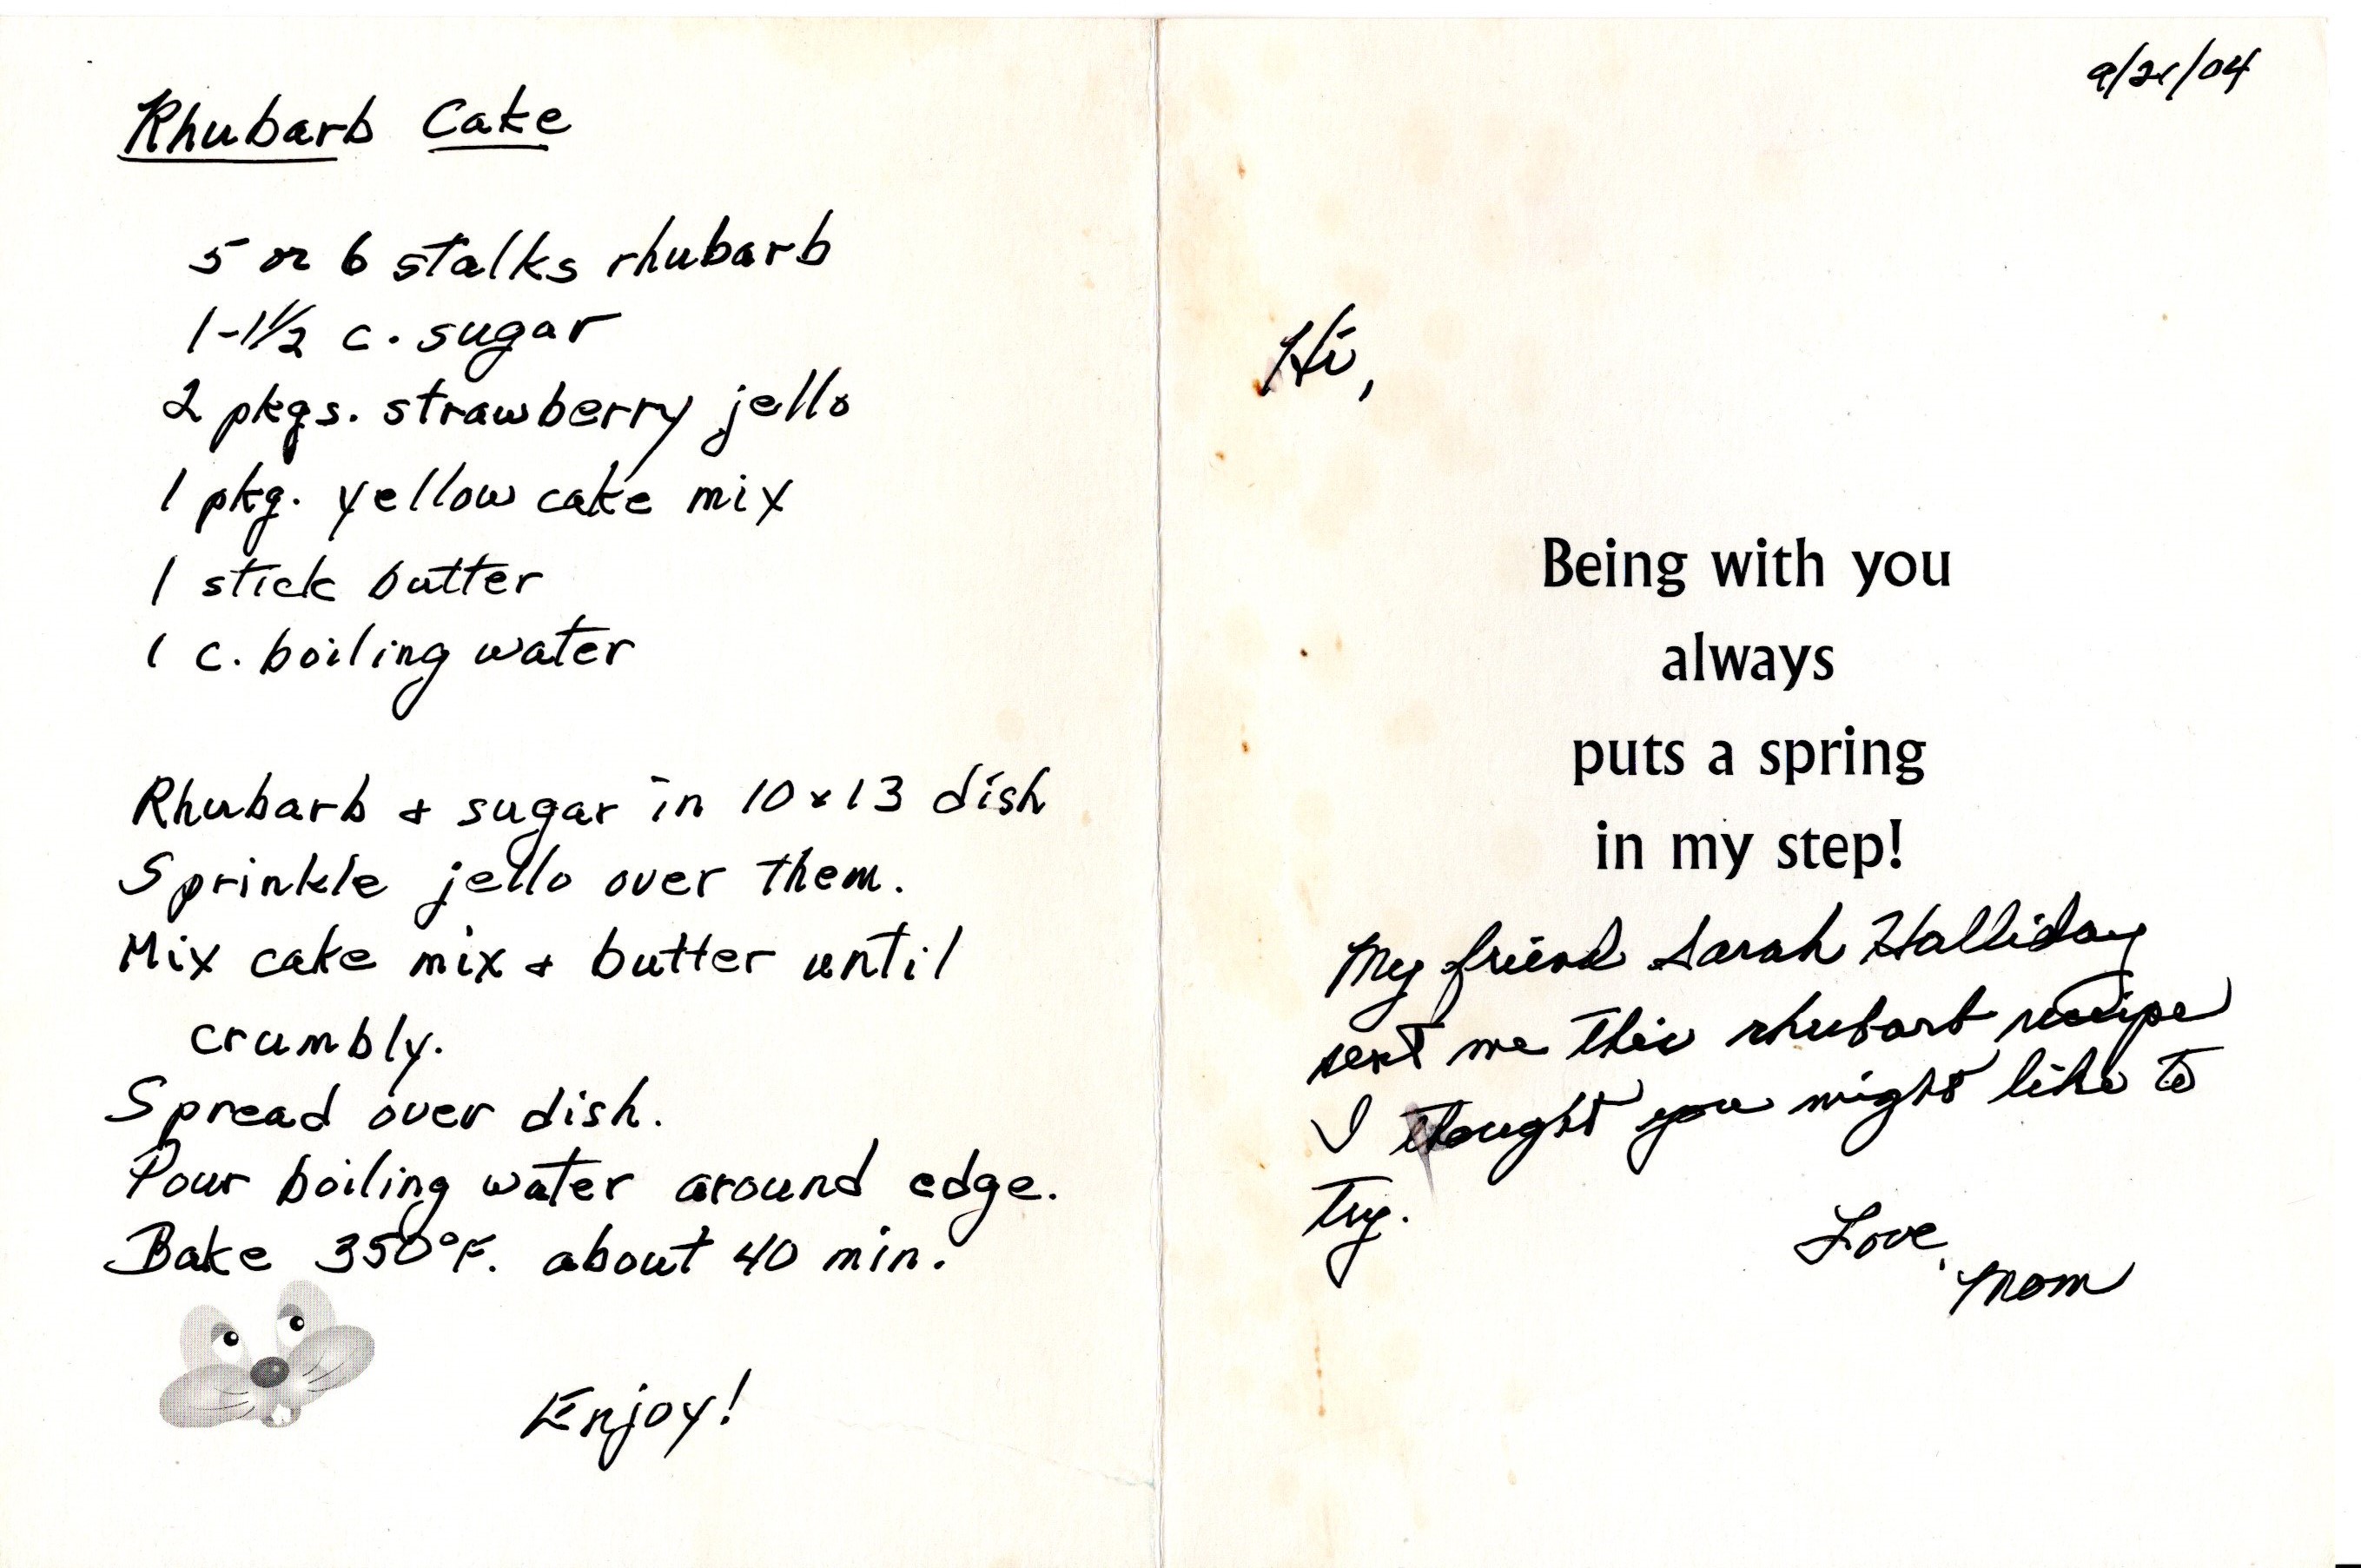 Rhubarb Cake
5 or 6 stalks rhubarb
1-1½ c. sugar
2 pkgs. strawberry jello
1 pkg. yellow cake mix
1 stick butter
1 c. boiling water
Rhubarb + sugar in 10x13 dish
Sprinkle jello over them.
Mix cake mix + butter until
crumbly.
Spread over dish.
Pour boiling water around edge.
Bake 350°F. about 40 min.
Enjoy!
9/21/04
Hi,
Being with you
always
puts a spring
in my step!
My friend Sarah Halliday
sent me this rhubarb recipe
I thought you might like to
try.
Love,
Mom